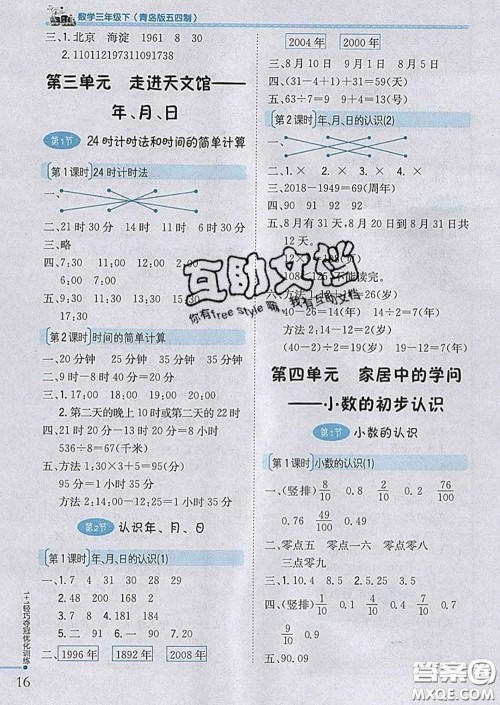 数学三年级下(青岛版五四制)
三、1.北京 海淀 1961 8 30
2.110112197311230021
第三单元 走进天文馆——
年、月、日
第1节 24时计时法和时间的简单计算
第1课时 24时计时法
一、
二、21时30分 12时 14时 11时 6时30分
三、略
四、7:30 11:00 12:00 2:00
7:30 18:00 19:00 21:00
五、9:30 15:30 17:30
第2课时 时间的简单计算
一、20分钟 25分钟 35分钟 35分钟
二、7时-9时 8时
三、1.17:00
2.第二天的晚上10时或第二天的22时
四、22:14-13:18=8时56分=536分
536÷8=67(千米)
五、方法1:30×3+5=95(分)
95分=1小时35分
方法2:12:02-10:27=1小时35分
第2节 认识年、月、日
第1课时 年、月、日的认识(1)
一、1.7 4 31 30 28 29
2.48 200 168 2
3.2 4 7 29
二、1996年 1892年 2008年
1+1轻巧夺冠优化训练
16
2004年 2000年
三、8月10日 9月1日 8月5日
四、(31-4+1)÷4=7(天)
五、63÷7=9 9+4=13(号)
第2课时 年、月、日的认识(2)
一、
二、1.× 2.× 3.× 4.×
三、2018-1949=69(周年)
四、90 91 92 92
五、8月有31天,8月20日到8月31日共有
12天。
不能读完。
六、方法1:
40-26=14(年) 1+17=18(年)
方法2:14÷2-1=26(岁)
(40-2)÷2=19(岁) 36-19=17(年)
第四单元 家居中的学问
——小数的初步认识
第1节 小数的认识
第1课时 小数的认识(1)
一、(竖排) 8/10 0.8 0.2 4/10 76/100
0.76 49/100 0.49
二、零点五 零点一六 零点零二
三点零九
三、1.0.44 2.0.80
四、(竖排) 9/10 0.9 1/10 0.1 4/10 0.4
五、90.09
互助文档
你有free style嘛,我有互助文档
答案圈
MXQE.COM